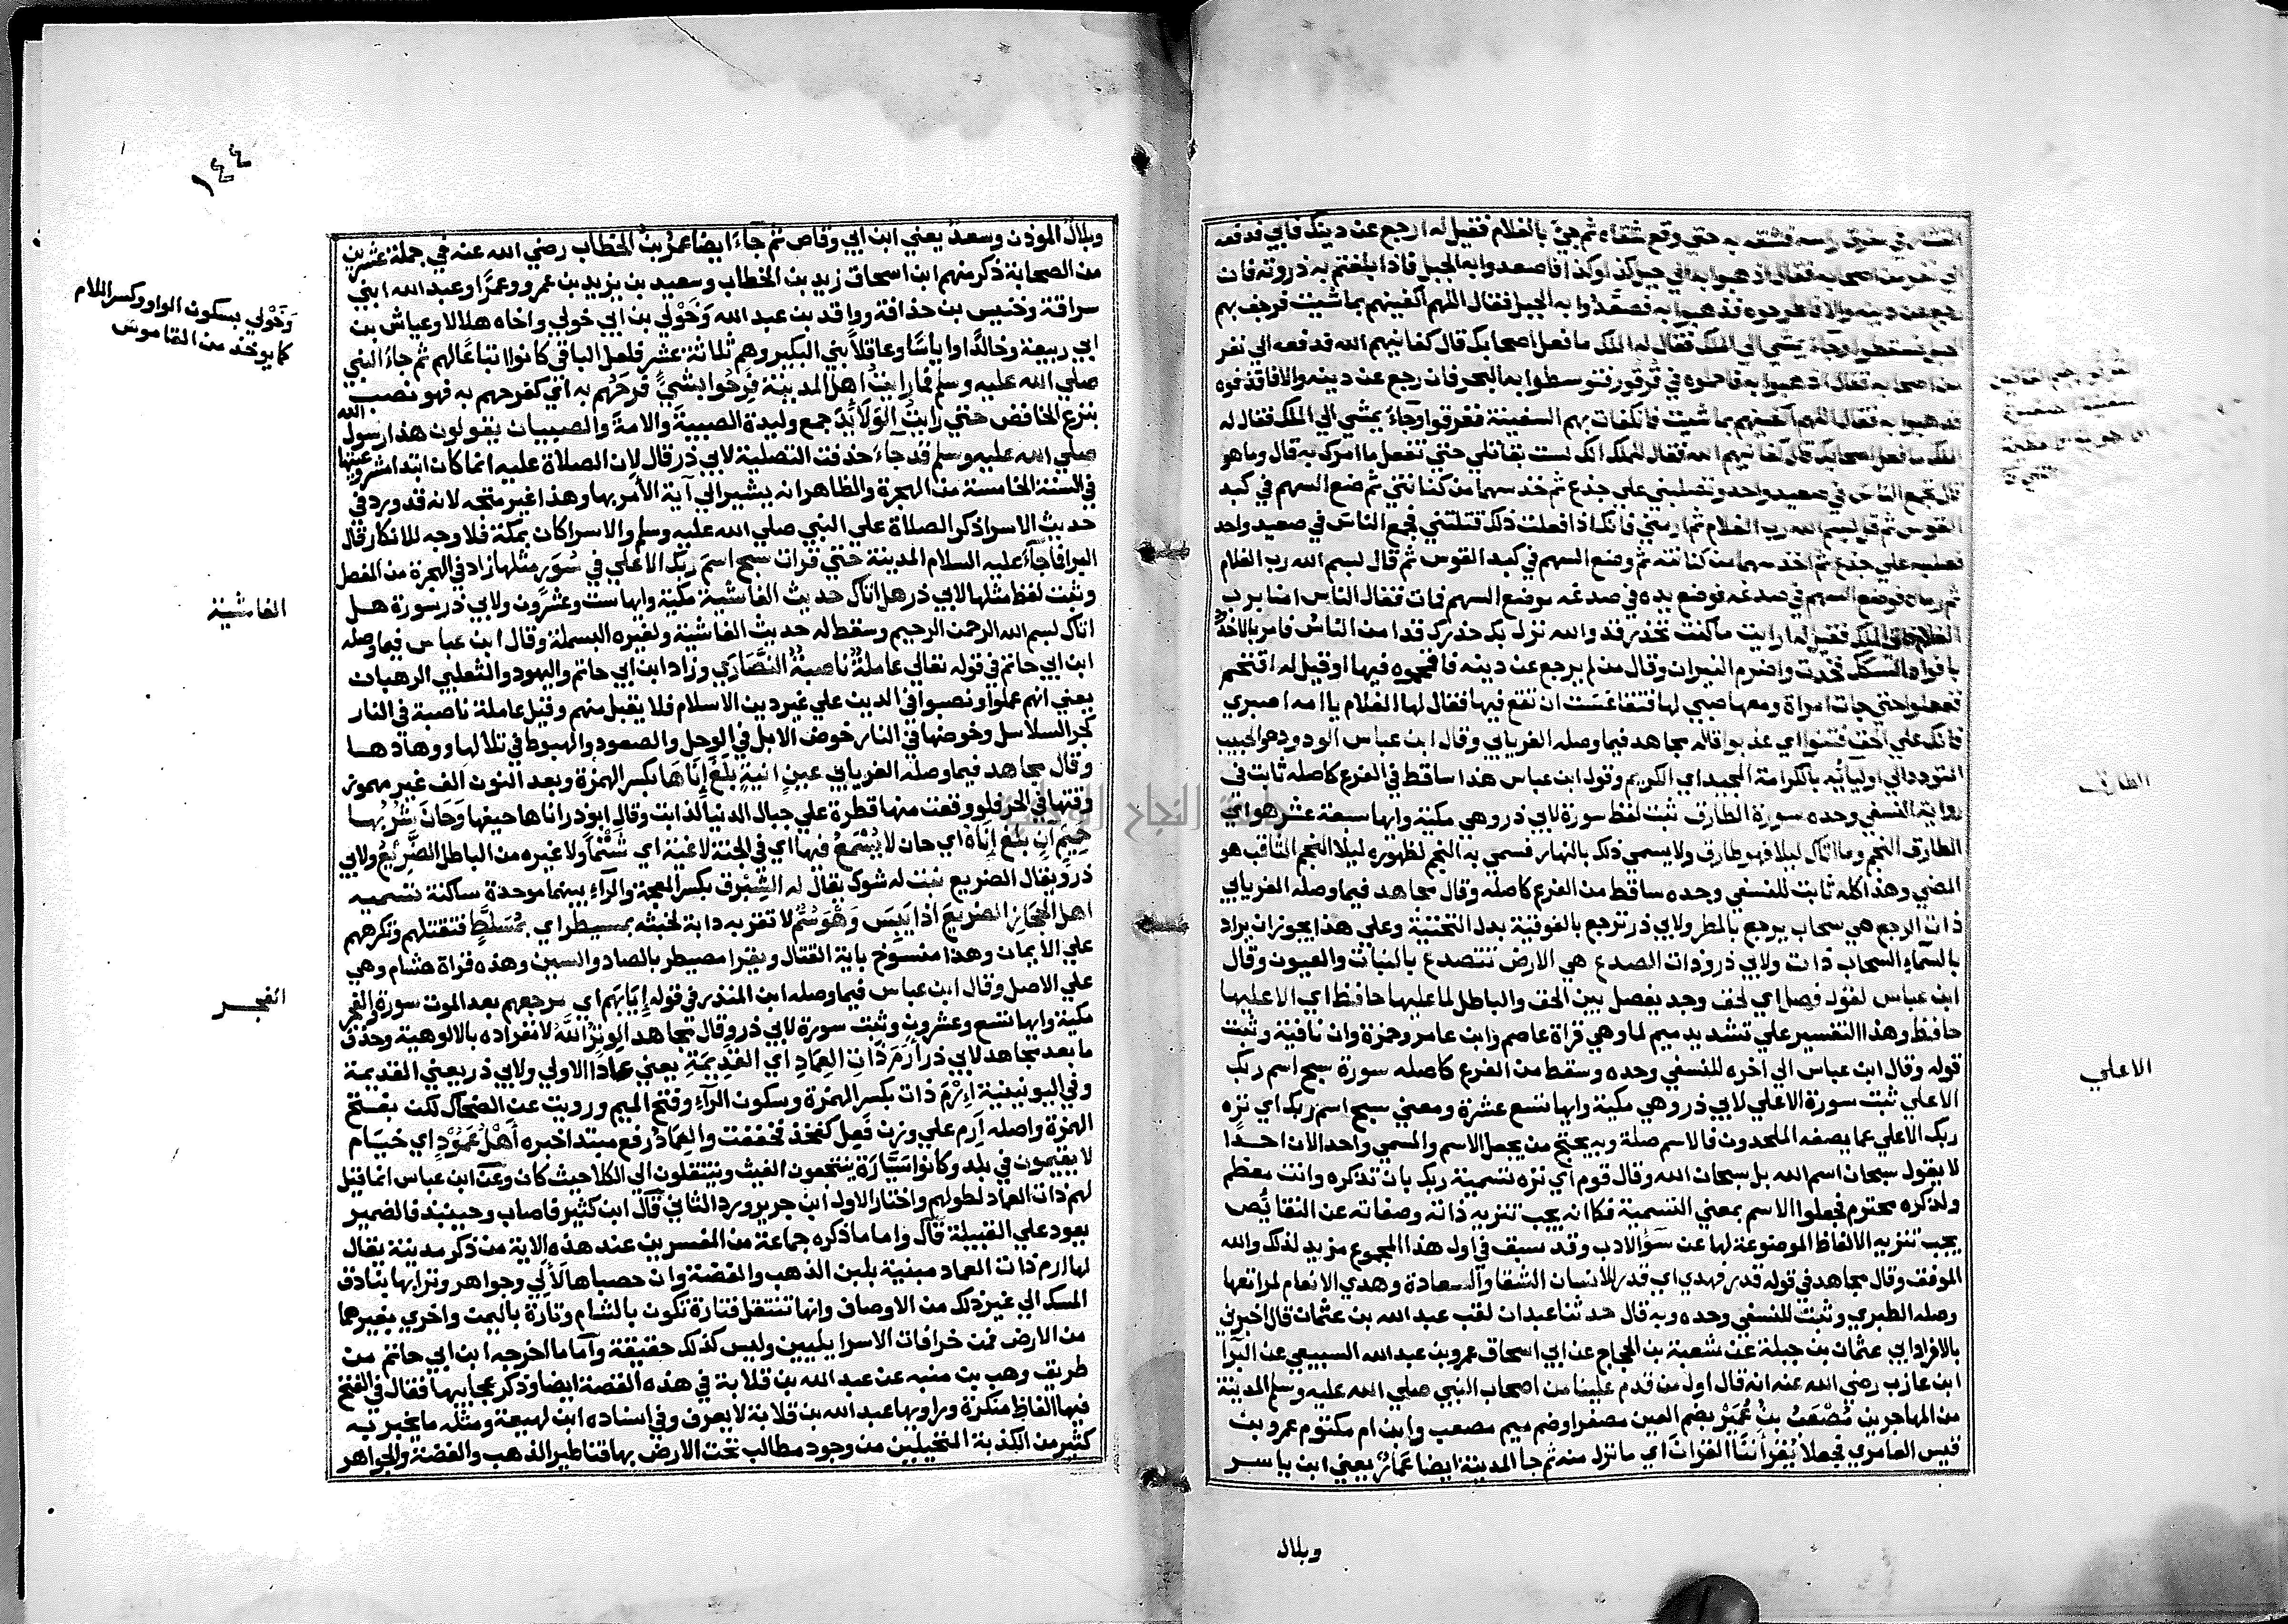 المنشار في مفرق راسه فشقه به حتي وقع شقاه ثم جيئ بالغلام فقيل له ارجع عن دينك فابي فدفعه
الي نفر من اصحابه فقال اذهبوا به الي جبل كذا وكذا فاصعدوا به الجبل فاذا بلغتم به ذروته فان
رجع عن دينه والا فاطرحوه فذهبوا به فصعدوا به الجبل فقال اللهم اكفنيهم بما شيت فرجف بهم
الجبل فسقطوا وجاء يمشي الي الملك فقال له الملك ما فعل اصحابك قال كفانيهم الله فدفعه الي نفر
من اصحابه فقال اذهبوا به فاحملوه في قرقور فتوسطوا به البحر فان رجع عن دينه والا فاقذفوه
فذهبوا به فقال اللهم اكفنيهم بما شيت فانكفات بهم السفينة فغرقوا وجاء يمشي الي الملك فقال له
الملك ما فعل اصحابك قال كفانيهم الله فقال للملك انك لست بقاتلي حتي تفعل ما امرك به قال وما هو
قال تجمع الناس في صعيد واحد وتصلبني علي جذع ثم خذ سهما من كنانتي ثم ضع السهم في كبد
القوس ثم قل بسم الله رب الغلام ثم ارمني فانك اذا فعلت ذلك قتلتني فجمع الناس في صعيد واحد
فصلبه علي جذع ثم اخذ سهما من كنانته ثم وضع السهم في كبد القوس ثم قال بسم الله رب الغلام
ثم رماه فوقع السهم في صدغه فوضع يده في صدغه موضع السهم فمات فقال الناس امنا برب
الغلام فاتي الملك فقيل له ارايت ما كنت تحذر قد والله نزل بك حذرك قد امن الناس فامر بالاخدود
بافواه السكك فخدت واضرم النيران وقال من لم يرجع عن دينه فاقحموه فيها او قيل له اقتحم
ففعلوا حتي جات امراة ومعها صبي لها فتقاعست ان تقع فيها فقال لها الغلام يا امه اصبري
فانك علي الحق فتنوا اي عذبوا قاله مجاهد فيما وصله الفريابي وقال ابن عباس الودود هو الحبيب
المتودد الي اوليائه بالكرامة المجيد اي الكريم وقول ابن عباس هذا ساقط في الفرع كاصله ثابت في
رواية النسفي وحده سورة الطارق ثبت لفظ سورة لابي ذر وهي مكية وايها سبعة عشر هو اي
الطارق النجم وما اتاك ليلا فهو طارق ولا يسمي ذلك بالنهار فسمي به النجم لظهوره ليلا النجم الثاقب هو
المضي وهذا كله ثابت للنسفي وحده ساقط من الفرع كاصله وقال مجاهد فيما وصله الفريابي
ذات الرجع هي سحاب يرجع بالمطر ولابي ذر ترجع بالفوقية بدل التحتية وعلي هذا يجوز ان يراد
بالسماء السحاب ذات ولابي ذر وذات الصدع هي الارض تتصدع بالنبات والعيون وقال
ابن عباس لقول فصل اي لحق وجد يفصل بين الحق والباطل لما عليها حافظ اي الا عليها
حافظ وهذا التفسير علي تشديد ميم لما وهي قراة عاصم وابن عامر وحمزة وان نافية وثبت
قوله وقال ابن عباس الي اخره للنسفي وحده وسقط من الفرع كاصله سورة سبح اسم ربك
الاعلي ثبت سورة الاعلي لابي ذر وهي مكية وايها تسع عشرة ومعني سبح اسم ربك اي نزه
ربك الاعلي عما يصفه الملحدون فالاسم صلة وبه يحتج من يجعل الاسم والمسمي واحدا لان احدا
لا يقول سبحان اسم الله بل سبحان الله وقال قوم اي نزه تسمية ربك بان تذكره وانت معظم
ولذكره محترم فجعلوا الاسم بمعني التسمية فكما انه يجب تنزيه ذاته وصفاته عن النقائص
يجب تنزيه الالفاظ الموضوعة لها عن سوء الادب وقد سبق في اول هذا المجموع مزيد لذلك والله
الموفق وقال مجاهد في قوله قدر فهدي اي قدر للانسان الشقا والسعادة وهدي الانعام لمراتعها
وصله الطبري وثبت للنسفي وحده وبه قال حدثنا عبدان لقب عبد الله بن عثمان قال اخبرني
بالافراد ابي عثمان بن جبلة عن شعبة بن الحجاج عن ابي اسحاق عمرو بن عبد الله السبيعي عن البرا
ابن عازب رضي الله عنه انه قال اول من قدم علينا من اصحاب النبي صلي الله عليه وسلم المدينة
من المهاجرين مصعب بن عمير بضم العين مصغرا وضم ميم مصعب وابن ام مكتوم عمرو بن
قيس العامري فجعلا يقرأننا القران اي ما نزل منه ثم جا المدينة ايضا عمار يعني ابن ياسر
وبلال
الطارق
الاعلي
١٤٤
وبلال الموذن وسعد يعني ابن ابي وقاص ثم جاء ايضا عمر بن الخطاب رضي الله عنه في جملة عشرين
من الصحابة ذكر منهم ابن اسحاق زيد بن الخطاب وسعيد بن يزيد بن عمرو وعمرا وعبد الله ابني
سراقة وخنيس بن حذافة وواقد بن عبد الله وخولي بن ابي خولي واخاه هلالا وعياش بن
ابي ربيعة وخالدا واياسا وعاقلا بني البكير وهم ثلاثة عشر فلعل الباقي كانوا اتباعا لهم ثم جاء النبي
صلي الله عليه وسلم فما رايت اهل المدينة فرحوا بشيء فرحهم به اي كفرحهم به فهو نصب
بنزع الخافض حتي رايت الولائد جمع وليدة الصبية والامة والصبيان يقولون هذا رسول الله
صلي الله عليه وسلم قد جاء حذفت التصلية لابي ذر قال لان الصلاة عليه انما كان ابتدا مشروعيتها
في السنة الخامسة من الهجرة والظاهر انه يشير الي آية الأمر بها وهذا غير متجه لانه قد ورد في
حديث الاسرا ذكر الصلاة علي النبي صلي الله عليه وسلم والاسرا كان بمكة فلا وجه للانكار قال
البرا فما جاء عليه السلام المدينة حتي قرات سبح اسم ربك الاعلي في سور مثلها زاد في الهجرة من المفصل
وثبت لفظ مثلها لابي ذر هل اتاك حديث الغاشية مكية وايها ست وعشرون ولابي ذر سورة هل
اتاك بسم الله الرحمن الرحيم وسقط له حديث الغاشية ولغيره البسملة وقال ابن عباس فيما وصله
ابن ابي حاتم في قوله تعالي عاملة ناصبة النصاري وزاد ابن ابي حاتم واليهود والثعلبي الرهبان
يعني انهم عملوا ونصبوا في الدين علي غير دين الاسلام فلا يقبل منهم وقيل عاملة ناصبة في النار
كجر السلاسل وخوضها في النار خوض الابل في الوحل والصعود والهبوط في تلالها ووهادها
وقال مجاهد فيما وصله الفريابي عين انية بلغ إناها بكسر الهمزة وبعد النون الف غير مهموز
وقتها في الحر فلو وقعت منها قطرة علي جبال الدنيا لذابت وقال ابو ذر اناها حينها وحان شربها
حميم ان بلغ إناه اي حان لا يسمع فيها اي في الجنة لاغية اي شتما ولا غيره من الباطل الضريع ولابي
ذر ويقال الضريع نبت له شوك يقال له الشبرق بكسر المعجمة والراء بينهما موحدة ساكنة تسميه
اهل الحجاز الضريع اذا يبس وهو سم لا تقربه دابة لخبثه بمسيطر اي بمسلط فتقتلهم وتكرههم
علي الايمان وهذا منسوخ باية القتال ويقرا مصيطر بالصاد والسين وهذه قراة هشام وهي
علي الاصل وقال ابن عباس فيما وصله ابن المنذر في قوله إيابهم اي مرجعهم بعد الموت سورة والفجر
مكية وايها تسع وعشرون وثبت سورة لابي ذر وقال مجاهد الوتر الله لانفراده بالالوهية وحذف
ما بعد مجاهد لابي ذر إرم ذات العماد اي القديمة يعني عادا الاولي ولابي ذر يعني القديمة
وفي اليونينية إرم ذات بكسر الهمزة وسكون الراء وفتح الميم ورويت عن الضحاك لكن بفتح
الهمزة واصله ارم علي وزن فعل كفخذ فخففت والعماد رفع مبتدا خبره أهل عمود اي خيام
لا يقيمون في بلد وكانوا سيارة ينتجعون الغيث وينتقلون الي الكلا حيث كان وعن ابن عباس انما قيل
لهم ذات العماد لطولهم واختار الاول ابن جرير ورد الثاني قال ابن كثير فاصاب وحينئذ فالضمير
يعود علي القبيلة قال واما ما ذكره جماعة من المفسرين عند هذه الاية من ذكر مدينة يقال
لها ارم ذات العماد مبنية بلبن الذهب والفضة وان حصباها لآلي وجواهر وترابها بنادق
المسك الي غير ذلك من الاوصاف وانها تنتقل فتارة تكون بالشام وتارة باليمن واخري بغيرهما
من الارض فمن خرافات الاسرايليين وليس كذلك حقيقة وأما ما اخرجه ابن ابي حاتم من
طريق وهب بن منبه عن عبد الله بن قلابة في هذه القصة ايضا وذكر عجايبها فقال في الفتح
فيها الفاظ منكرة وراويها عبد الله بن قلابة لا يعرف وفي اسناده ابن لهيعة ومثله ما يخبر به
كثير من الكذبة المتحيلين من وجود مطالب تحت الارض بها قناطير الذهب والفضة والجواهر
وخولي بسكون الواو وكسر اللام
كما يوخذ من القاموس
الغاشية
الفجر